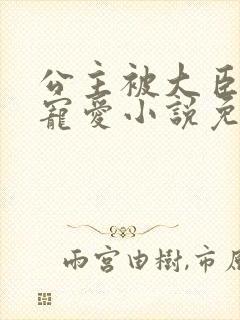 公主被大臣
寵愛小說免
雨宮由樹,市原